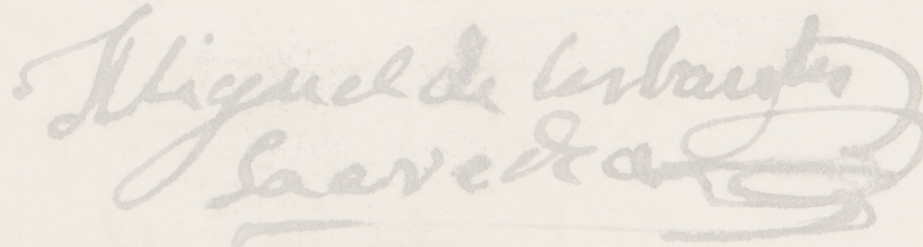 Miguel de Cerbantes
Saavedra